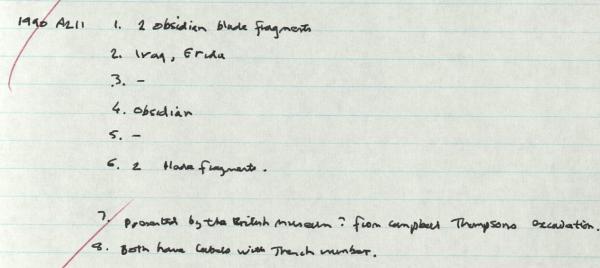 1990 A211 1. 2 obsidian blade fragments
2. Iraq, Eridu
3. -
4. Obsidian
5. -
6. 2 blade fragments.
7. Presented by the British Museum? from Campbell Thompsons excavation.
8. Both have labels with Trench number.